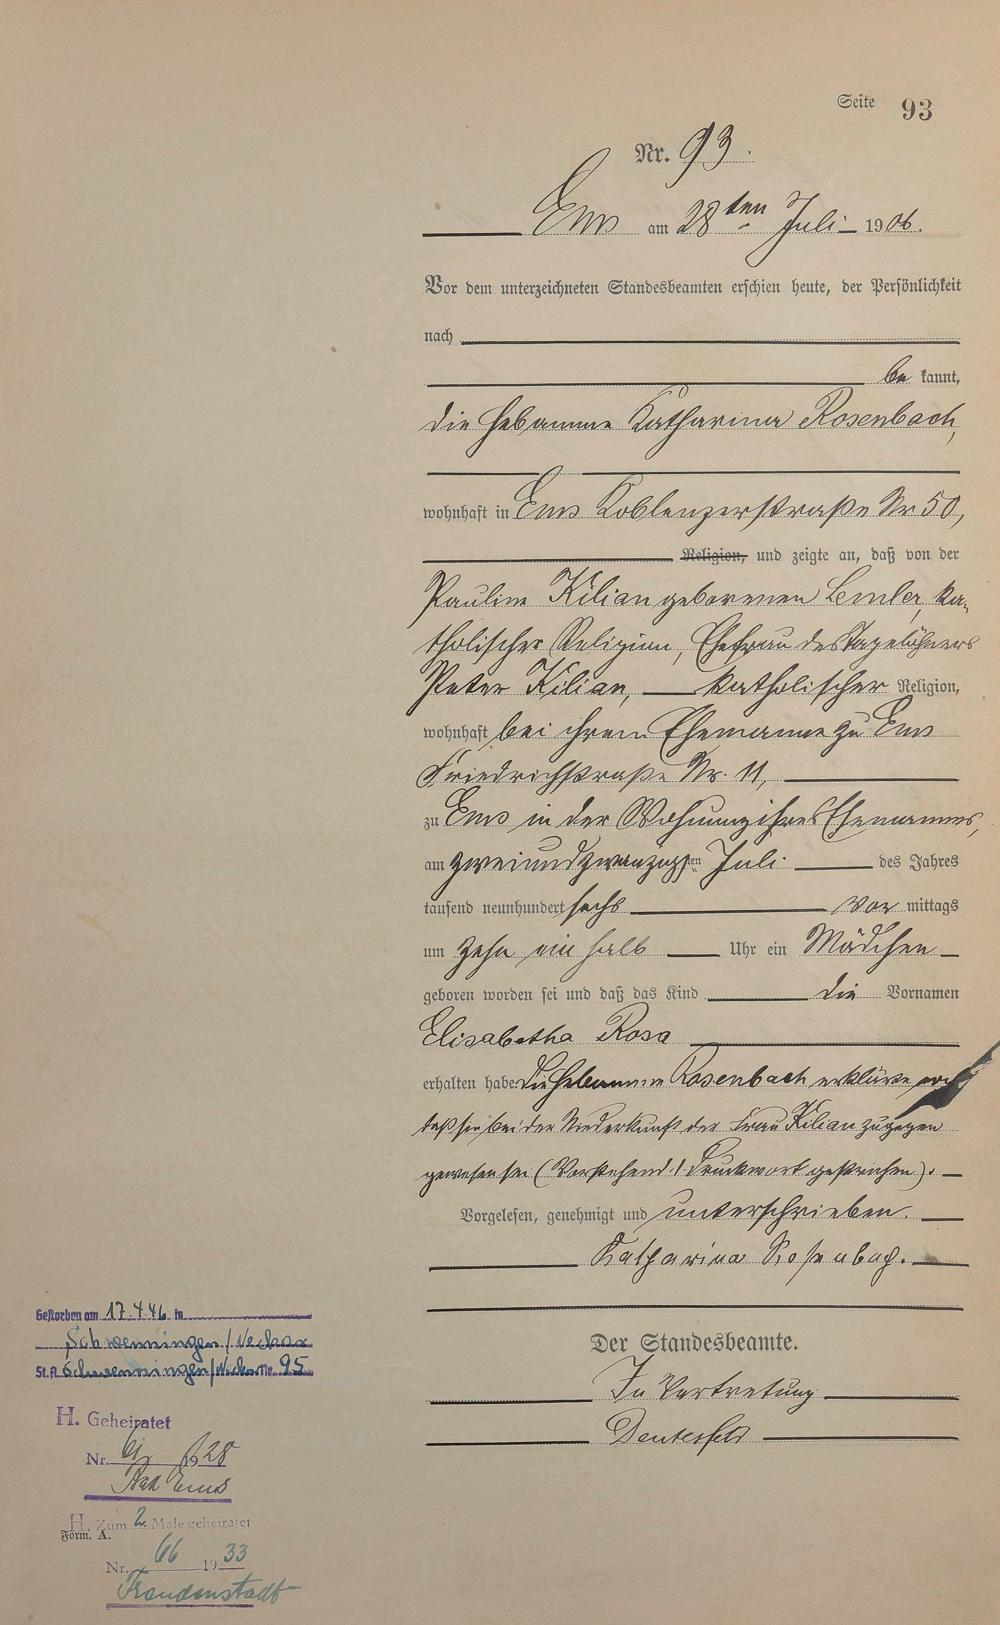 Seite 93
Nr. 93.
Ems am 28ten Juli 1906.
Vor dem unterzeichneten Standesbeamten erschien heute, der Persönlichkeit
nach
be kannt,
die Hebamme Katharina Rosenbach,
wohnhaft in Ems Koblenzerstraße Nr 50,
Religion, und zeigte an, daß von der
Pauline Kilian geborenen Lemler, ka-
tholischer Religion, Ehefrau des Tagelöhners
Peter Kilian, katholischer Religion,
wohnhaft bei ihrem Ehemanne zu Ems
Friedrichstraße Nr. 11,
zu Ems in der Wohnung ihres Ehemannes,
am zweiundzwanzigsten Juli des Jahres
tausend neunhundert sechs vor mittags
um zehn ein halb Uhr ein Mädchen
geboren worden sei und daß das Kind die Vornamen
Elisabetha Rosa
erhalten habe. Die Hebamme Rosenbach erklärte noch
daß sie bei der Niederkunft der Frau Kilian zugegen
gewesen sei (Vorstehend 1 Druckwort gestrichen).
Vorgelesen, genehmigt und unterschrieben.
Katharina Rosenbach.
Der Standesbeamte.
In Vertretung
Gestorben am 17.4.46 in
Schwenningen/Neckar
St.A. Schwenningen/Neckar Nr. 95
H. Geheiratet
Nr. 1928
Bad Ems
H. Zum 2. Male geheiratet
Form. A.
Nr. 66 1933
Freudenstadt